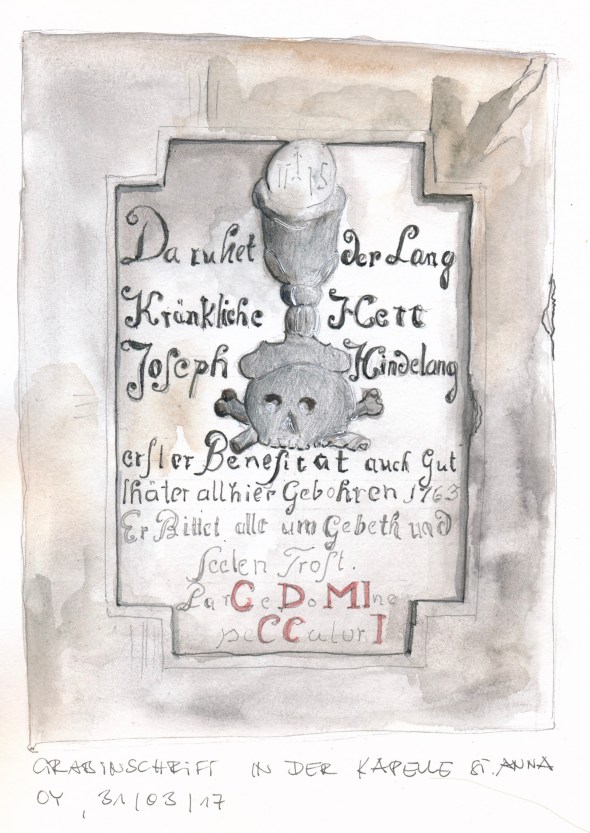 IHS
Da ruhet der Lang
Kränkliche Herr
Joseph Hindelang
erster Benefitat auch Gut
thäter allhier Gebohren 1763
Er Bittet alle um Gebeth und
Seelen Trost.
ParCe DoMIne
peCCaturI
GRABINSCHRIFT IN DER KAPELLE ST. ANNA
OY, 31/03/17